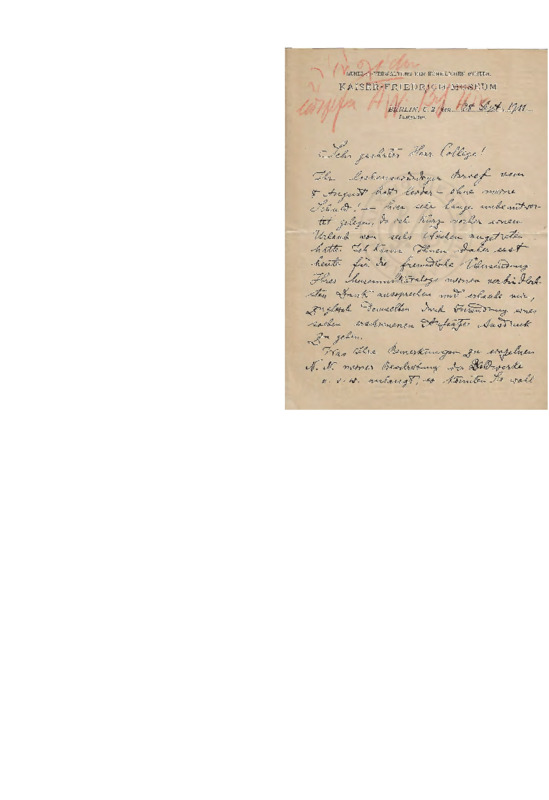 KAISER-FRIEDRICH-MUSEUM
BERLIN C. 2, den Sept. 1911
Sehr geehrter Herr College!
Ihr liebenswürdiger Brief vom
August hat leider – ohne meine
Schuld! – hier sehr lange unbeantwor-
tet gelegen, da ich kurz vorher einen
Urlaub von sechs Wochen angetreten
hatte. Ich kann Ihnen daher erst
heute für die freundliche Übersendung
Ihres Museumskataloges meinen verbindlich-
sten Dank aussprechen und erlaube mir,
zugleich demselben durch Zusendung eines
soeben erschienenen Aufsatzes Ausdruck
zu geben.
Was Ihre Bemerkungen zu einzelnen
N. N. meiner Beschreibung der Bildwerke
u. s. w. anlangt, so könnten Sie wohl